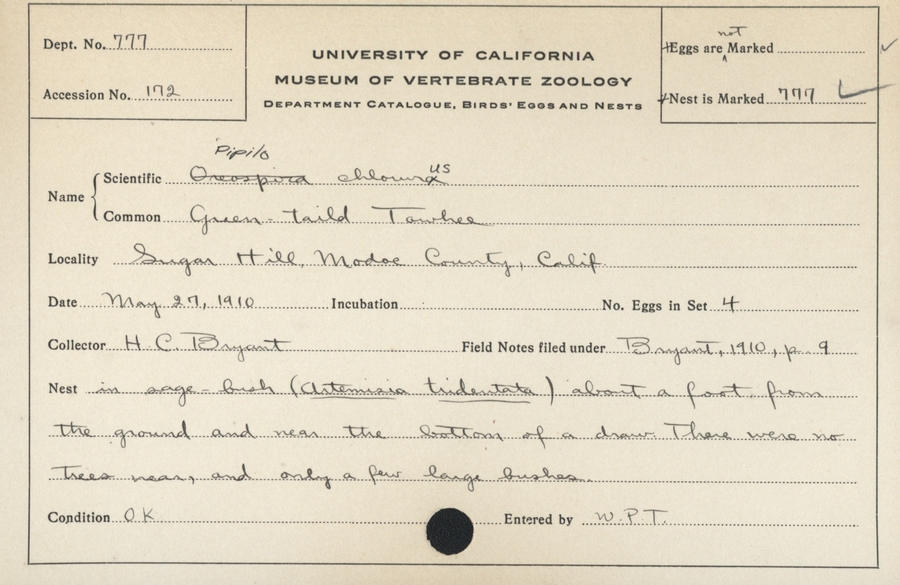 Dept. No. 777
Accession No. 172
UNIVERSITY OF CALIFORNIA
MUSEUM OF VERTEBRATE ZOOLOGY
DEPARTMENT CATALOGUE, BIRDS' EGGS AND NESTS
Eggs are not Marked
Nest is Marked 777
Pipilo
Name Scientific Oreospiza chlorura us
Common Green-taild Towhee
Locality Sugar Hill, Modoc County, Calif
Date May 27, 1910 Incubation No. Eggs in Set 4
Collector H. C. Bryant Field Notes filed under Bryant, 1910, p. 9
Nest in sage-bush (Artemisia tridentata) about a foot from
the ground and near the bottom of a draw. There were no
trees near, and only a few large bushes.
Condition OK Entered by W.P.T.